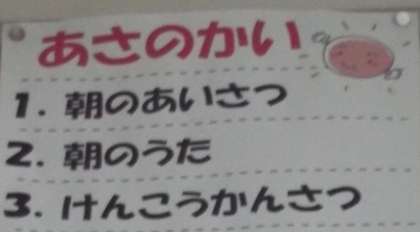 あさのかい
1. 朝のあいさつ
2. 朝のうた
3. けんこうかんさつ